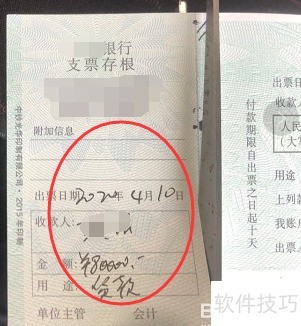 银行
支票存根
附加信息
出票日期 2020年4月10日
收款人:
金 额: ¥80000.-
用 途: 货款
单位主管 会计
中钞光华印制有限公司·2015年印制
付款期限自出票之日起十天
出票日
付款
人民
(大写
用途
上列款
我账
出票人
软件技巧